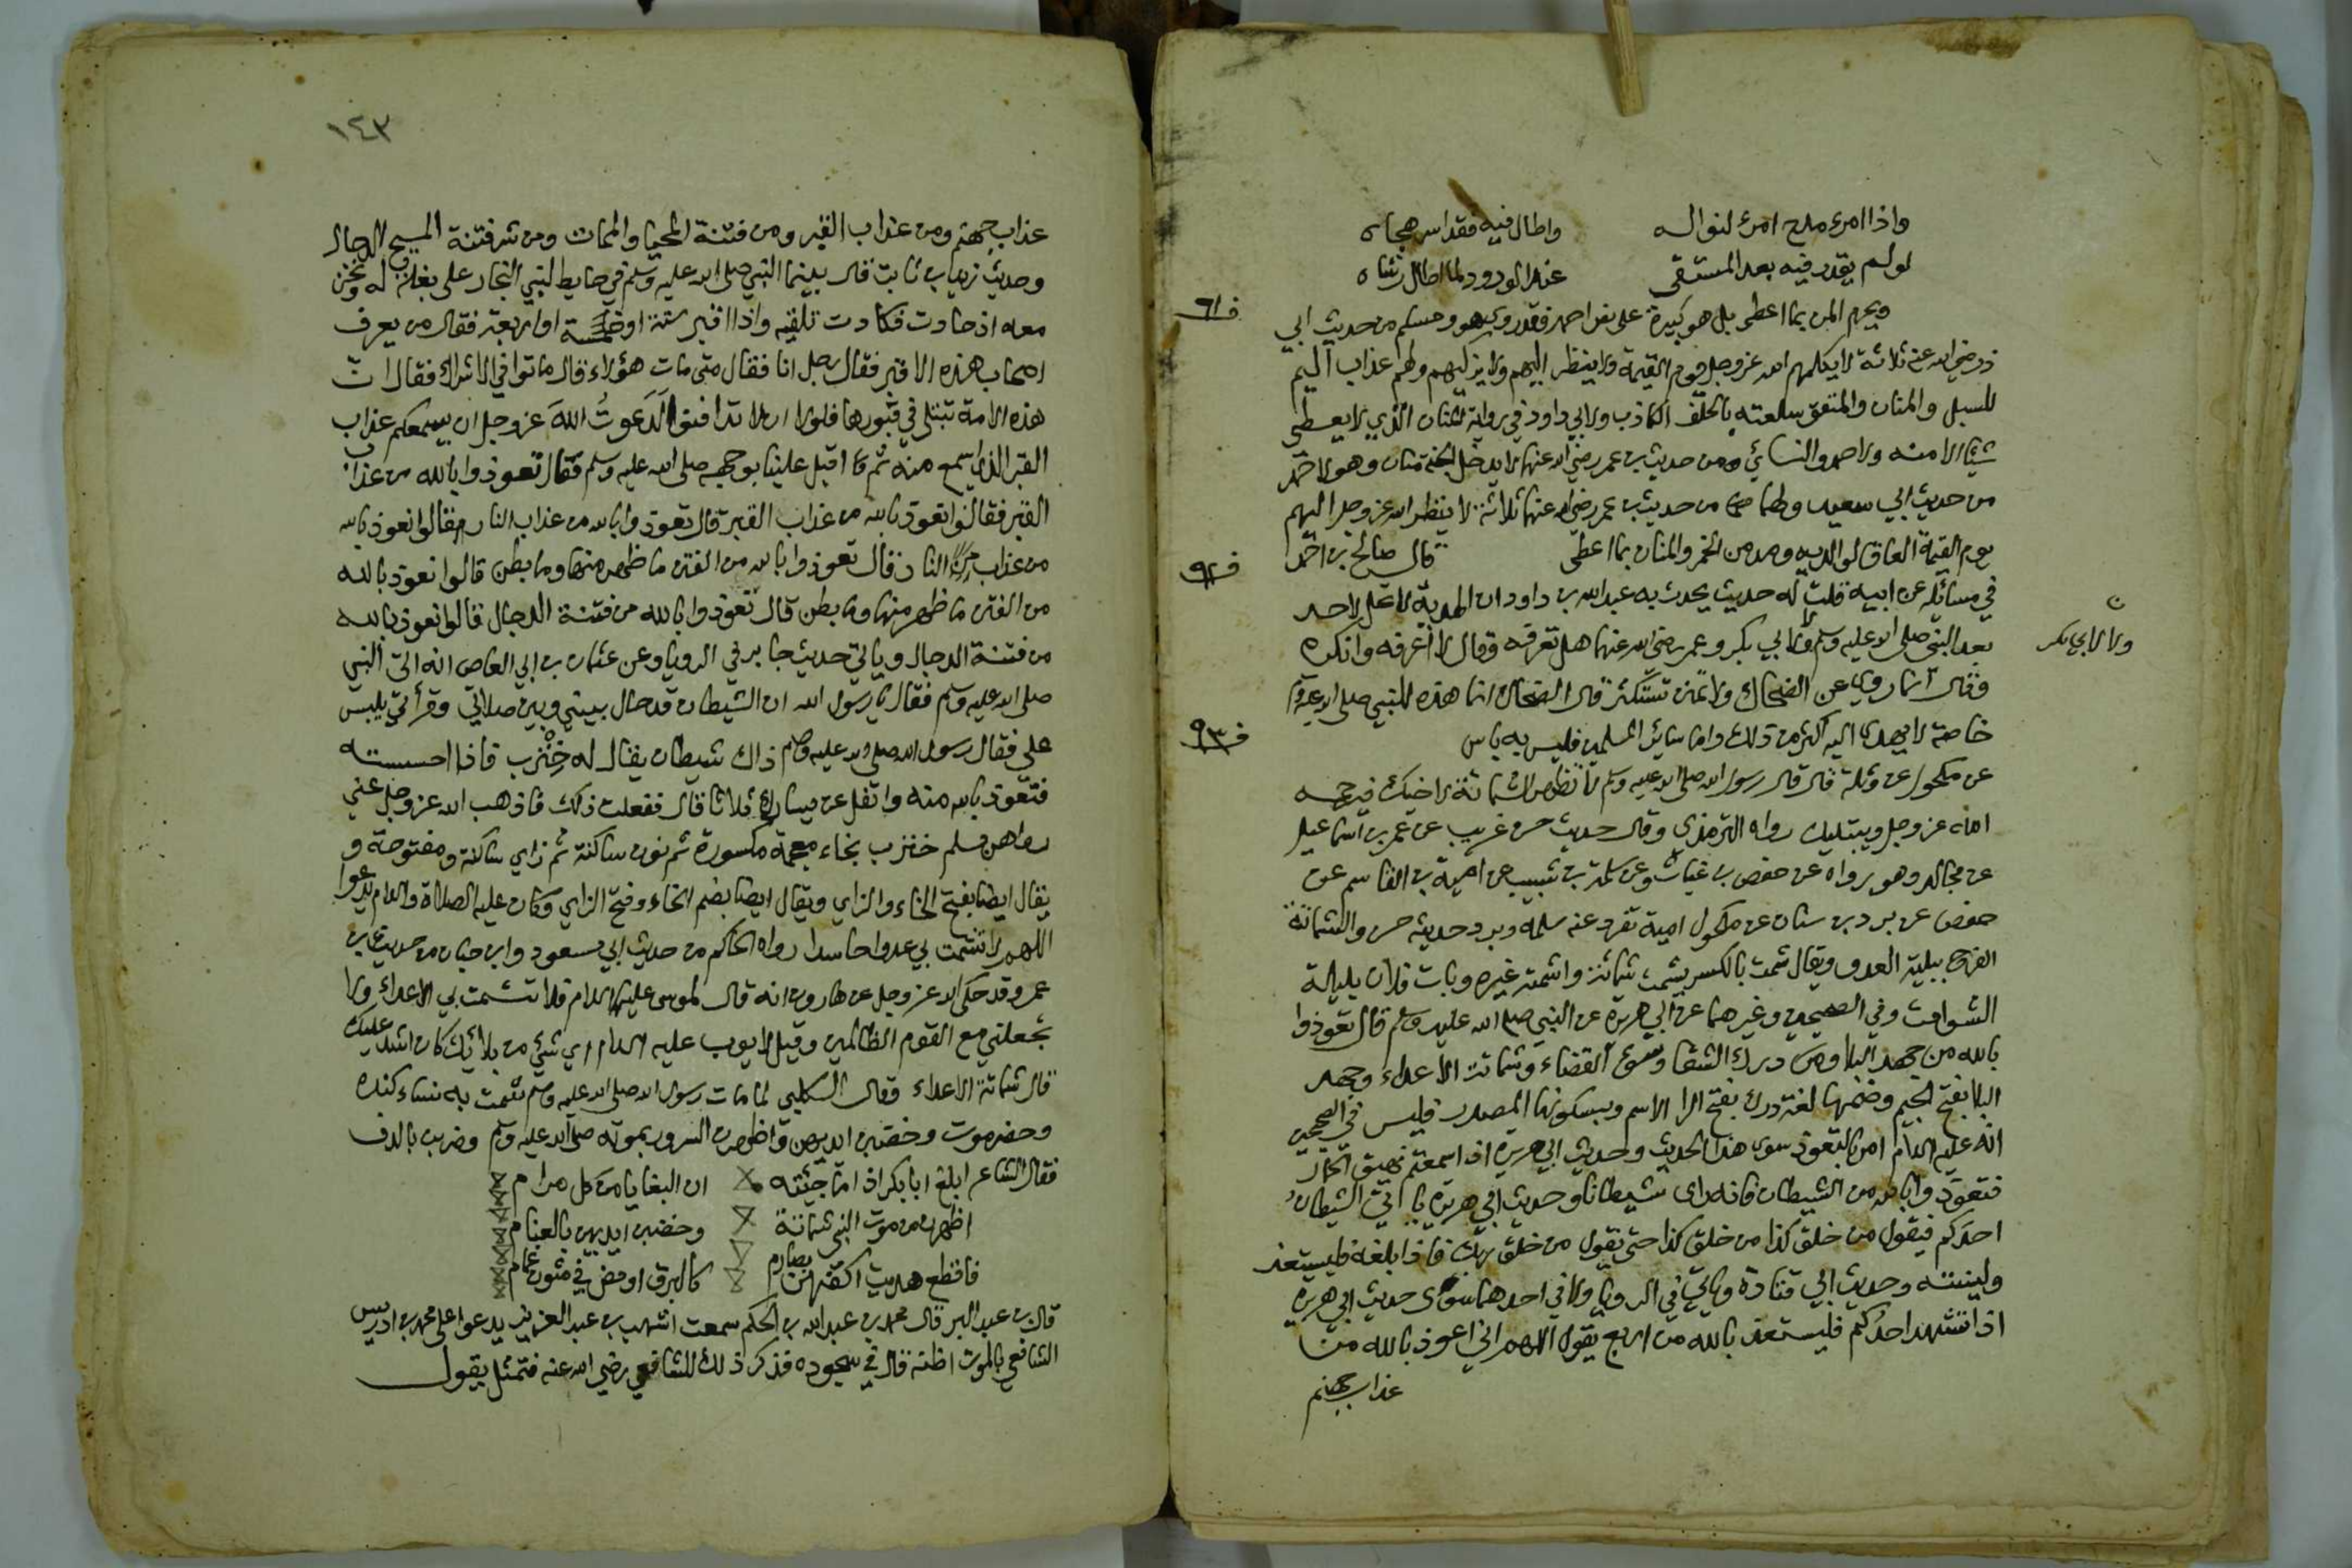 واذا امرء مدح امرئ لنواله واطال فيه فقد اسر هجاه
لو لم يقدر فيه بعد المستقى عند الورود لما اطال رشاه
ف ٩١
ويحرم المن بما اعطى بل هو كبيرة على نص احمد فقد روى هو ومسلم من حديث ابي
ذر رضي الله عنه ثلاثة لا يكلمهم الله عز وجل يوم القيمة ولا ينظر اليهم ولا يزكيهم ولهم عذاب اليم
المسبل والمنان والمنفق سلعته بالحلف الكاذب ولابي داود في رواية المنان الذي لا يعطي
شيئا الا منه ولاحمد والنسائي ومن حديث بن عمر رضي الله عنهما لا يدخل الجنة منان وهو لاحمد
من حديث ابي سعيد ولهما ايضا من حديث بن عمر رضي الله عنهما ثلاثة لا ينظر الله عز وجل اليهم
يوم القيمة العاق لوالديه ومدمن الخمر والمنان بما اعطى قال صالح بن احمد
ف ٩٢
في مسائله عن ابيه قلت له حديث يحدث به عبد الله بن داود ان الهدية لا تحل لاحد
بعد النبي صلى الله عليه وسلم ولا لابي بكر وعمر رضي الله عنهما هل تعرفه وقال لا اعرفه وانكره
ن
ولا لابي بكر
وقال انما روي عن الضحاك ولا تمنن تستكثر قال الضحاك انما هذه للنبي صلى الله عليه وسلم
خاصة لا يهدى اليه اكثر من ذلك واما سائر المسلمين فليس به باس
ف ٩٣
عن مكحول عن وثلة قال قال رسول الله صلى الله عليه وسلم لا تظهر الشماتة لاخيك فيرحمه
الله عز وجل ويبتليك رواه الترمذي وقال حديث حسن غريب عن عمر بن اسماعيل
عن مجالد وهو يرواه عن حفص بن غياث وعن سلمة بن شبيب عن امية بن القاسم عن
حفص عن برد بن سنان عن مكحول امية تفرد عنه سلمه وبرد حديثه حسن والشماتة
الفرح ببلية العدو ويقال شمت بالكسر يشمت شماتة واشمته غيره وبات فلان بليلة
الشوامت وفي الصحيحين وغيرهما عن ابي هريرة عن النبي صلى الله عليه وسلم قال تعوذوا
بالله من جهد البلا ومن درك الشقا وسوء القضاء وشماتة الاعداء وجهد
البلا بفتح الجيم وضمها لغة ودرك بفتح الرا الاسم وبسكونها المصدر فليس في الصحيحين
انه عليه السلام امر بالتعوذ سوى هذا الحديث وحديث ابي هريرة اذا سمعتم نهيق الحمار
فتعوذوا بالله من الشيطان فانه راى شيطانا وحديث ابي هريرة يا اتي الشيطان
احدكم فيقول من خلق كذا من خلق كذا حتى يقول من خلق ربك فاذا بلغه فليستعذ
ولينته وحديث ابي قتادة وياتي في الرويا ولا في احدهما سوى حديث ابي هريرة
اذا تشهد احدكم فليستعذ بالله من اربع يقول اللهم اني اعوذ بالله من
عذاب جهنم
١٤٣
عذاب جهنم ومن عذاب القبر ومن فتنة المحيا والممات ومن شر فتنة المسيح الدجال
وحديث زيد بن ثابت قال بينما النبي صلى الله عليه وسلم في حايط لبني النجار على بغلة له ونحن
معه اذ حادت فكادت تلقيه واذا اقبر ستة او خمسة او اربعة فقال من يعرف
اصحاب هذه الاقبر فقال رجل انا فقال متى مات هؤلاء قال ماتوا في الاشراك فقال ان
هذه الامة تبتلى في قبورها فلولا ان لا تدافنوا لدعوت الله عز وجل ان يسمعكم عذاب
القبر الذي اسمع منه ثم قا اقبل علينا بوجهه صلى الله عليه وسلم فقال تعوذوا بالله من عذاب
القبر فقالوا نعوذ بالله من عذاب القبر قال تعوذوا بالله من عذاب النار فقالوا نعوذ بالله
من عذاب النار قال تعوذوا بالله من الفتن ما ظهر منها وما بطن قالوا نعوذ بالله
من الفتن ما ظهر منها وما بطن قال تعوذوا بالله من فتنة الدجال قالوا نعوذ بالله
من فتنة الدجال وياتي حديث جابر في الرويا وعن عثمان بن ابي العاص انه اتى النبي
صلى الله عليه وسلم فقال يا رسول الله ان الشيطان قد حال بيني وبين صلاتي وقرأتي يلبس
علي فقال رسول الله صلى الله عليه وسلم ذاك شيطان يقال له خنزب فاذا احسسته
فتعوذ بالله منه واتفل عن يسارك ثلاثا قال ففعلت ذلك فاذهب الله عز وجل عني
رواهن مسلم خنزب بخاء معجمة مكسورة ثم نون ساكنة ثم زاي ساكنة ومفتوحة و
يقال ايضا بفتح الخاء والزاي ويقال ايضا بضم الخاء وفتح الزاي وكان عليه الصلاة والسلام يدعوا
اللهم لا تشمت بي عدوا حاسدا رواه الحاكم من حديث ابي مسعود وابن حبان من حديث بن
عمر وقد حكى الله عز وجل عن هارون انه قال لموسى عليهما السلام فلا تشمت بي الاعداء ولا
تجعلني مع القوم الظالمين وقيل لايوب عليه السلام اي شيئ من بلائك كان اشد عليك
قال شماتة الاعداء وقال الكلبي لما مات رسول الله صلى الله عليه وسلم شمت به نساء كنده
وحضرموت وخضبن ايديهن واظهرن السرور بموته صلى الله عليه وسلم وضربن بالدف
فقال الشاعر ابلغ ابا بكر اذا ما جئته ان البغايا من كل مرام
اظهرن من موت النبي شماتة وخضبن ايديهن بالعنام
فاقطع هديت اكفهن بصارم كالبرق اومض في متون غمام
قال بن عبد البر قال محمد بن عبد الله بن الحكم سمعت اشهب بن عبد العزيز يدعوا على محمد بن ادريس
الشافعي بالموت اظنه قال في سجوده فذكر ذلك للشافعي رضي الله عنه فتمثل يقول